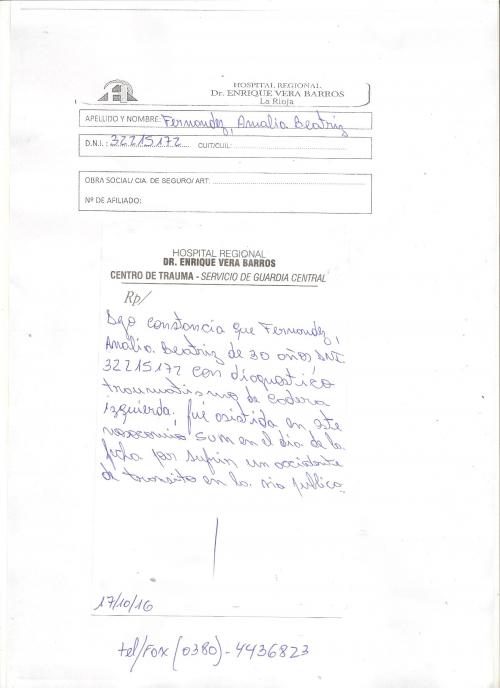 HOSPITAL REGIONAL
Dr. ENRIQUE VERA BARROS
La Rioja
APELLIDO Y NOMBRE: Fernandez, Amalia Beatriz
D.N.I.: 32215172 CUIT/CUIL:
OBRA SOCIAL/ CIA. DE SEGURO/ ART.
Nº DE AFILIADO:
HOSPITAL REGIONAL
DR. ENRIQUE VERA BARROS
CENTRO DE TRAUMA - SERVICIO DE GUARDIA CENTRAL
Rp/
Dejo constancia que Fernandez,
Amalia Beatriz de 30 años, DNI
32215172 con diagnostico
traumatismo de cadera
izquierda, fué asistida en este
nosocomio en el día de la
fecha por sufrir un accidente
de transito en la via publica.
17/10/16
tel/fox (0380)-4436823